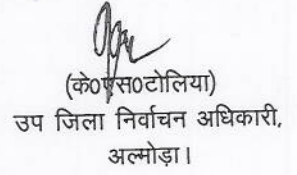 (के०एस०टोलिया)
उप जिला निर्वाचन अधिकारी,
अल्मोड़ा।